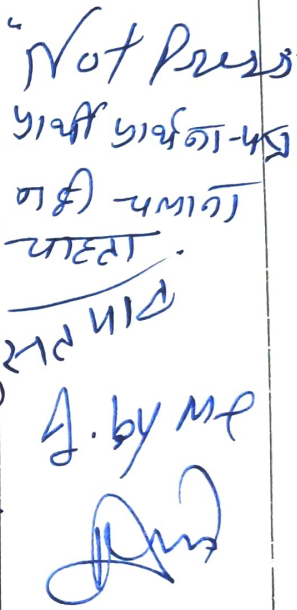 "Not Press
प्रार्थी प्रार्थना-पत्र
नही चलाना
चाहता.
सतपाल
by me